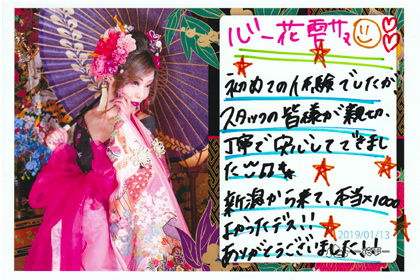 心-花雪サマ
初めての体験でしたが
スタッフの皆様が親切、
丁寧で安心してできまし
た♡♫
新潟から来て、本当×1000
よかったデス!!
2019/01/13
ありがとうございました!!